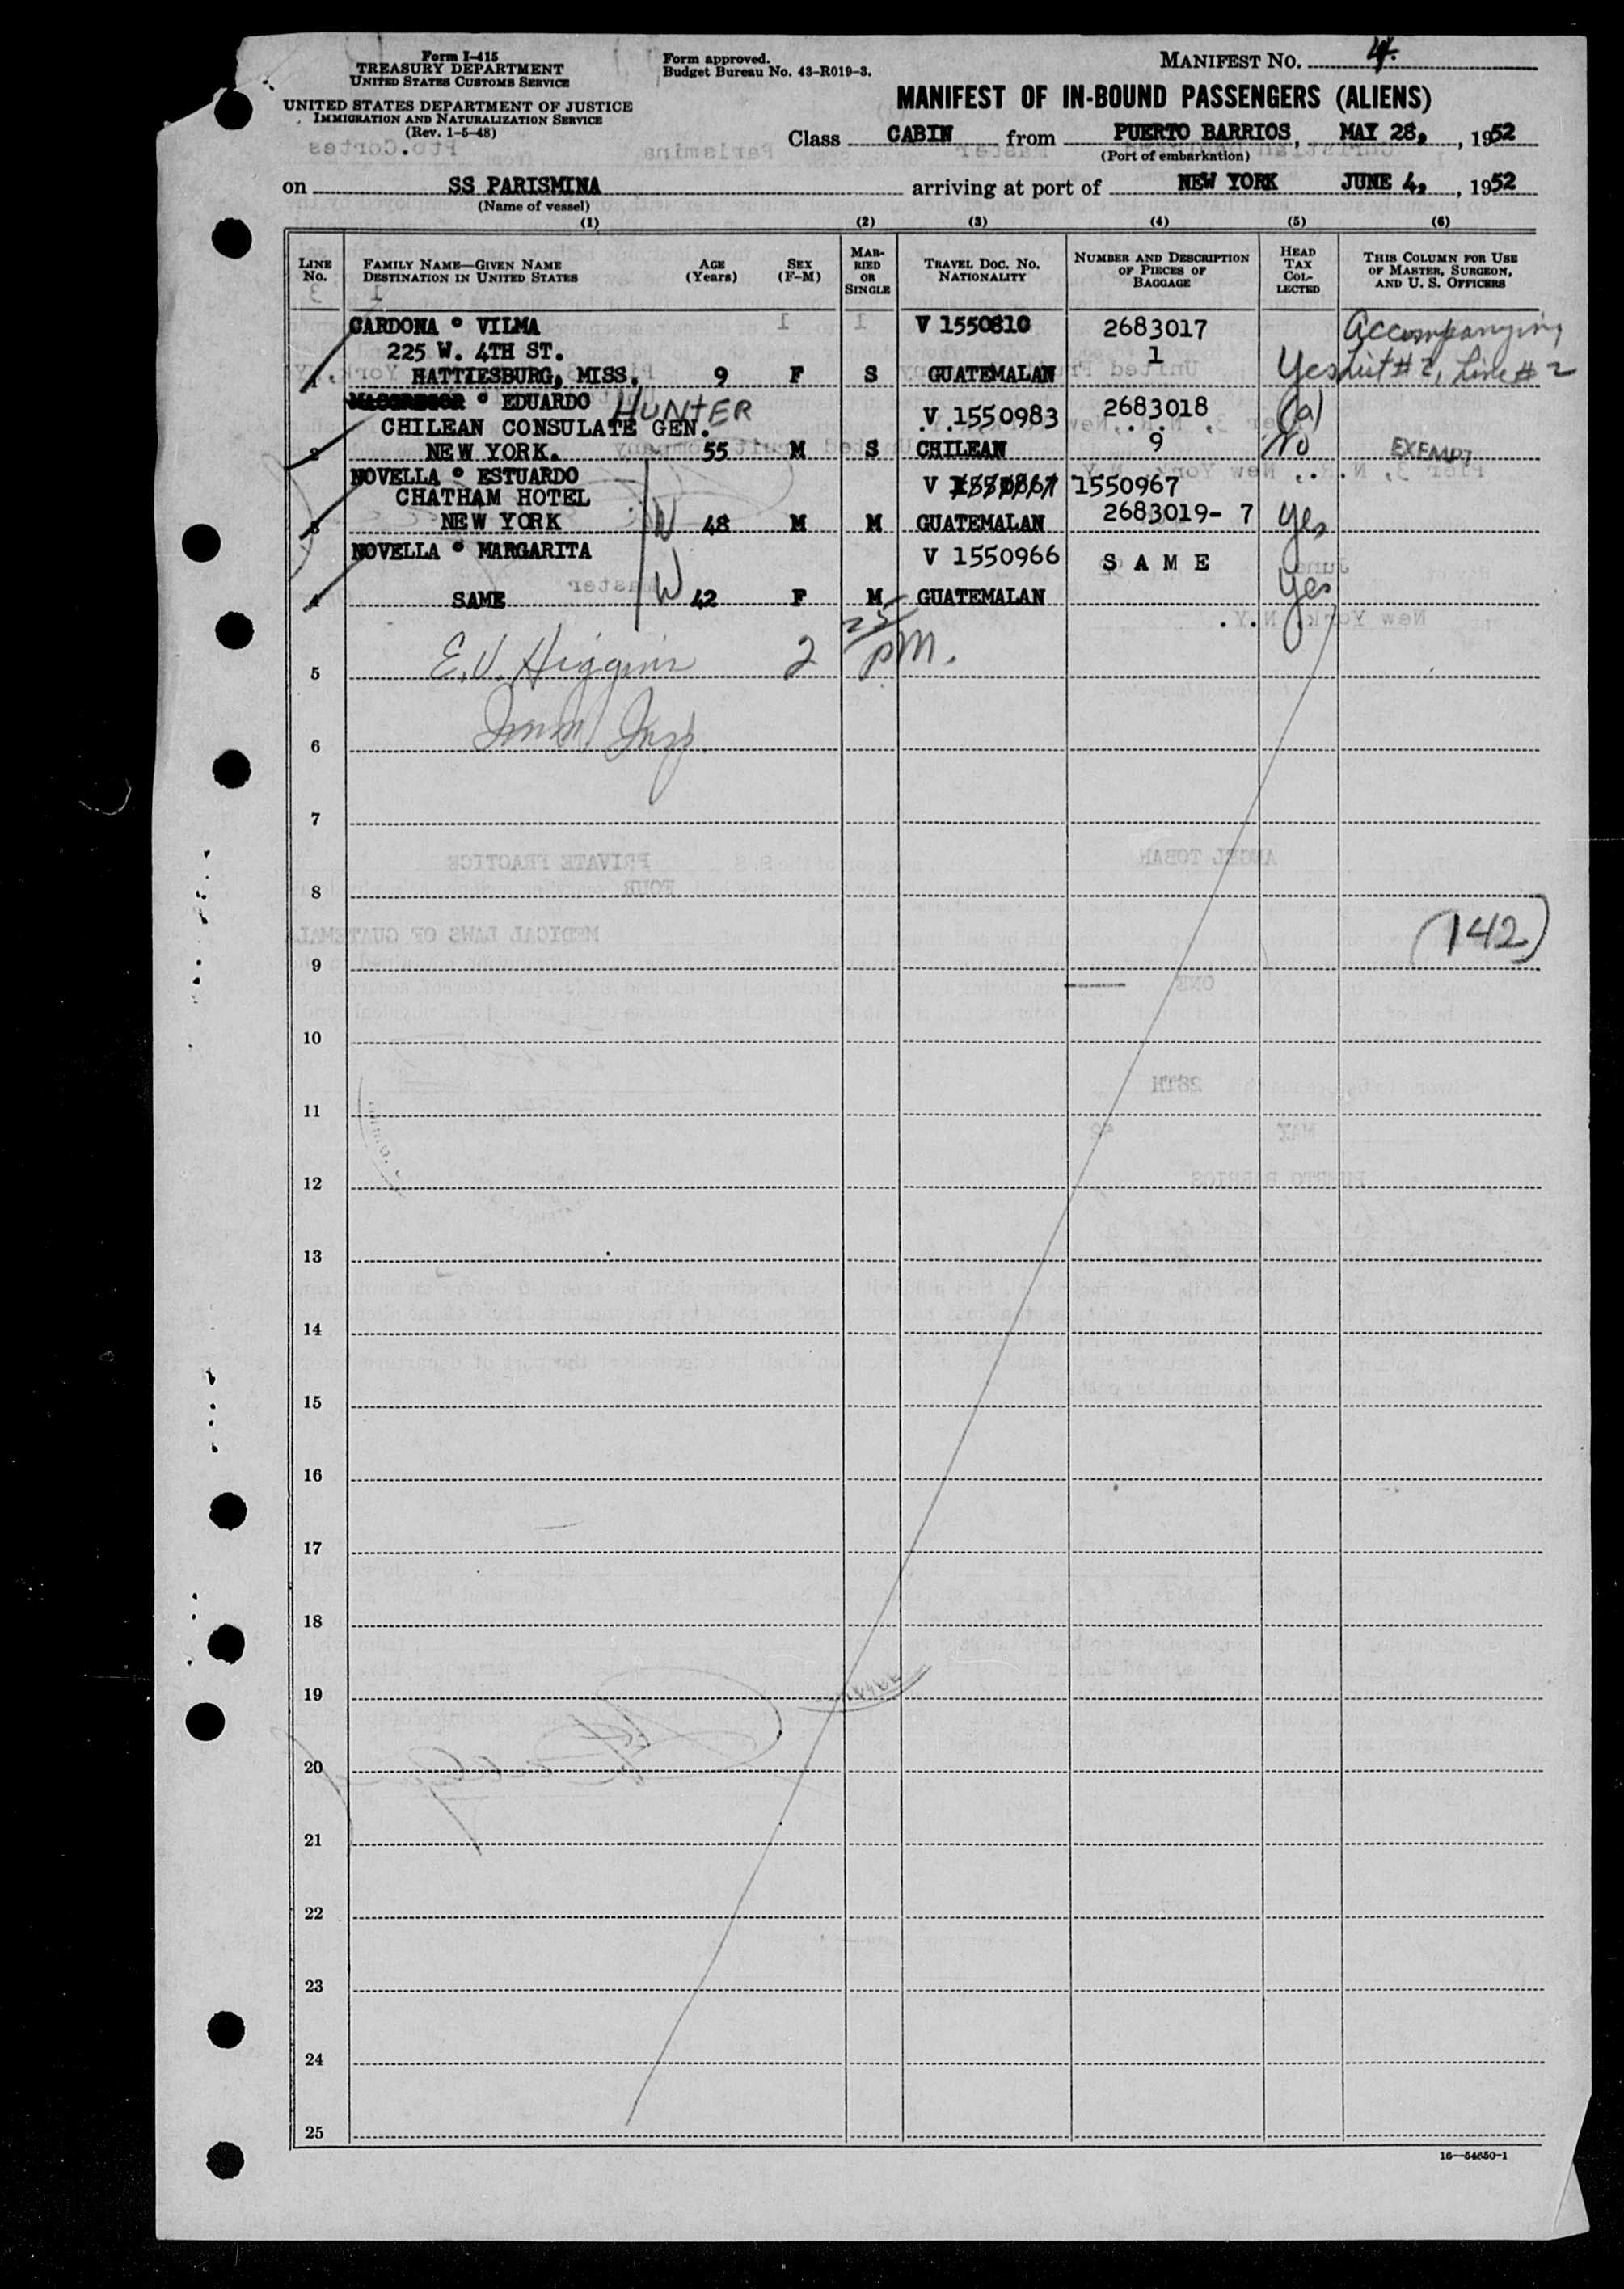 Form I-415
TREASURY DEPARTMENT
UNITED STATES CUSTOMS SERVICE
UNITED STATES DEPARTMENT OF JUSTICE
IMMIGRATION AND NATURALIZATION SERVICE
(Rev. 1-5-48)
Form approved.
Budget Bureau No. 43-R019-3.
MANIFEST NO. 4.
MANIFEST OF IN-BOUND PASSENGERS (ALIENS)
Class CABIN from PUERTO BARRIOS, MAY 28, , 1952
(Port of embarkation)
on SS PARISMINA arriving at port of NEW YORK JUNE 4, , 1952
(Name of vessel)
(1) (2) (3) (4) (5) (6)
LINE No.
FAMILY NAME—GIVEN NAME
DESTINATION IN UNITED STATES
AGE (Years)
SEX (F-M)
MARRIED OR SINGLE
TRAVEL DOC. NO. NATIONALITY
NUMBER AND DESCRIPTION OF PIECES OF BAGGAGE
HEAD TAX COLLECTED
THIS COLUMN FOR USE OF MASTER, SURGEON, AND U. S. OFFICERS
CARDONA ° VILMA V 1550810 2683017 Accompanying
225 W. 4TH ST. 1
1 HATTIESBURG, MISS. 9 F S GUATEMALAN Yes List # 2, Line # 2
MACGREGOR ° EDUARDO HUNTER V 1550983 2683018 (a)
CHILEAN CONSULATE GEN. 9
2 NEW YORK. 55 M S CHILEAN No EXEMPT
NOVELLA ° ESTUARDO V 1550867 1550967
CHATHAM HOTEL
3 NEW YORK W 48 M M GUATEMALAN 2683019- 7 Yes
NOVELLA ° MARGARITA V 1550966 S A M E
4 SAME W 42 F M GUATEMALAN Yes
E.V. Higgins 2 25/ PM.
5
Imm. Insp.
6
7
8
(142)
9
10
11
12
13
14
15
16
17
18
19
20
21
22
23
24
25
16—54650-1